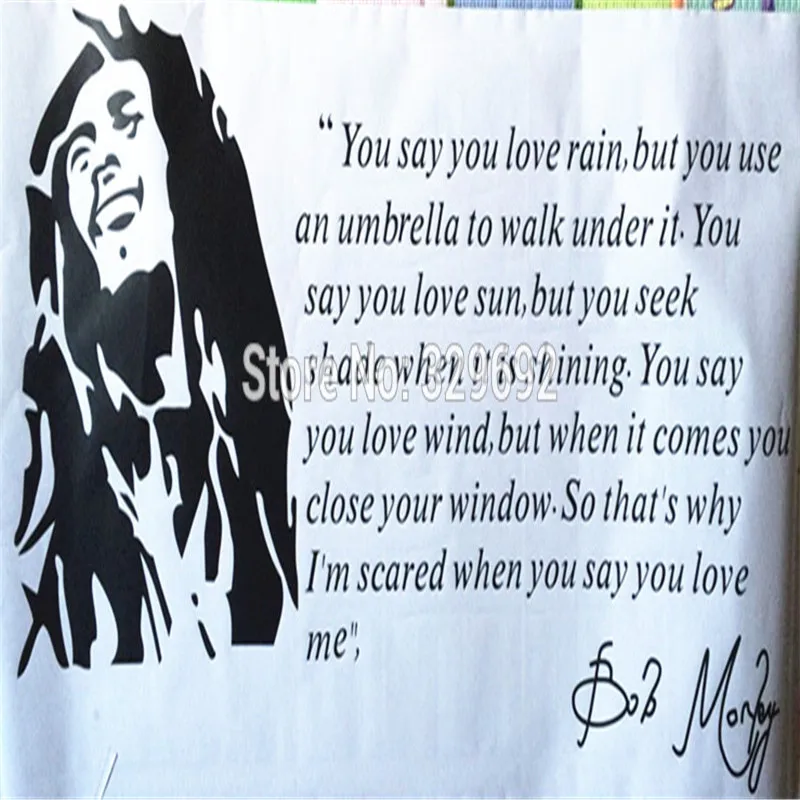 “You say you love rain, but you use
an umbrella to walk under it. You
say you love sun, but you seek
shade when it is shining. You say
you love wind, but when it comes you
close your window. So that's why
I'm scared when you say you love
me",
Bob Marley
Store No: 329692